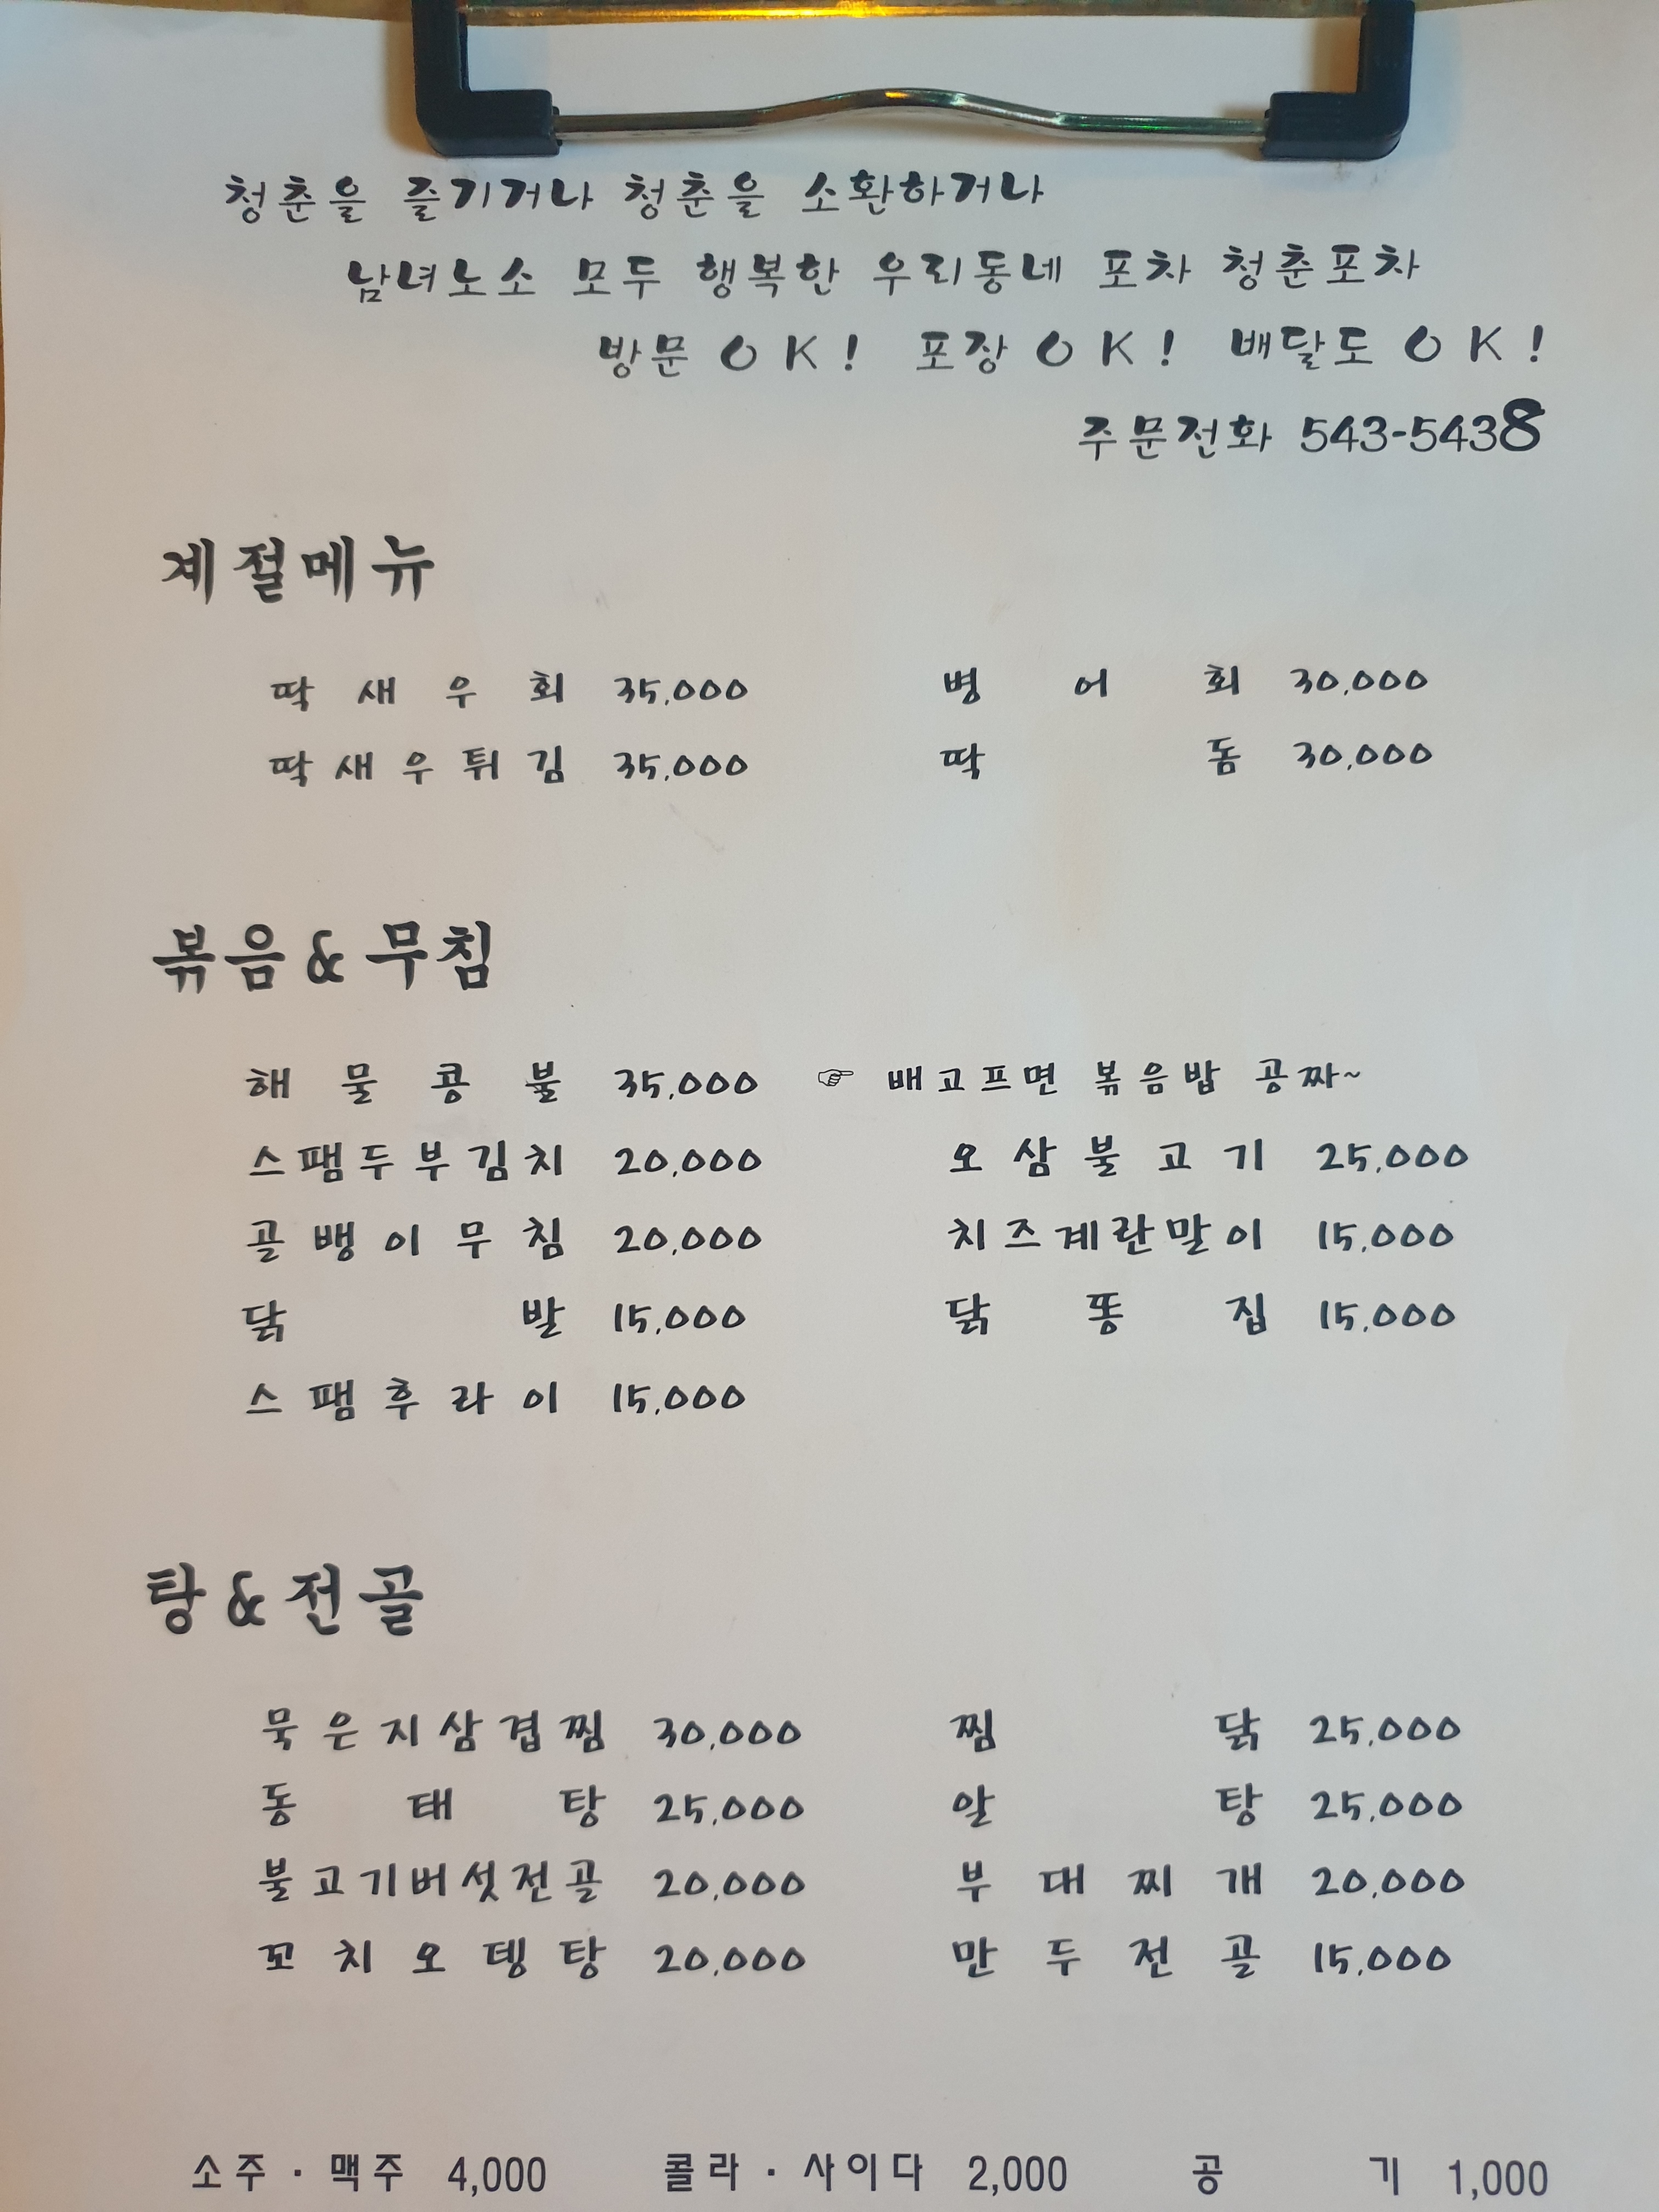 청춘을 즐기거나 청춘을 소환하거나
남녀노소 모두 행복한 우리동네 포차 청춘포차
방문 OK! 포장 OK! 배달도 OK!
주문전화 543-5438
계절메뉴
딱새우회 35,000 병어회 30,000
딱새우튀김 35,000 딱돔 30,000
볶음&무침
해물콩불 35,000 ☞ 배고프면 볶음밥 공짜~
스팸두부김치 20,000 오삼불고기 25,000
골뱅이무침 20,000 치즈계란말이 15,000
닭발 15,000 닭똥집 15,000
스팸후라이 15,000
탕&전골
묵은지삼겹찜 30,000 찜닭 25,000
동태탕 25,000 알탕 25,000
불고기버섯전골 20,000 부대찌개 20,000
꼬치오뎅탕 20,000 만두전골 15,000
소주·맥주 4,000 콜라·사이다 2,000 공기 1,000